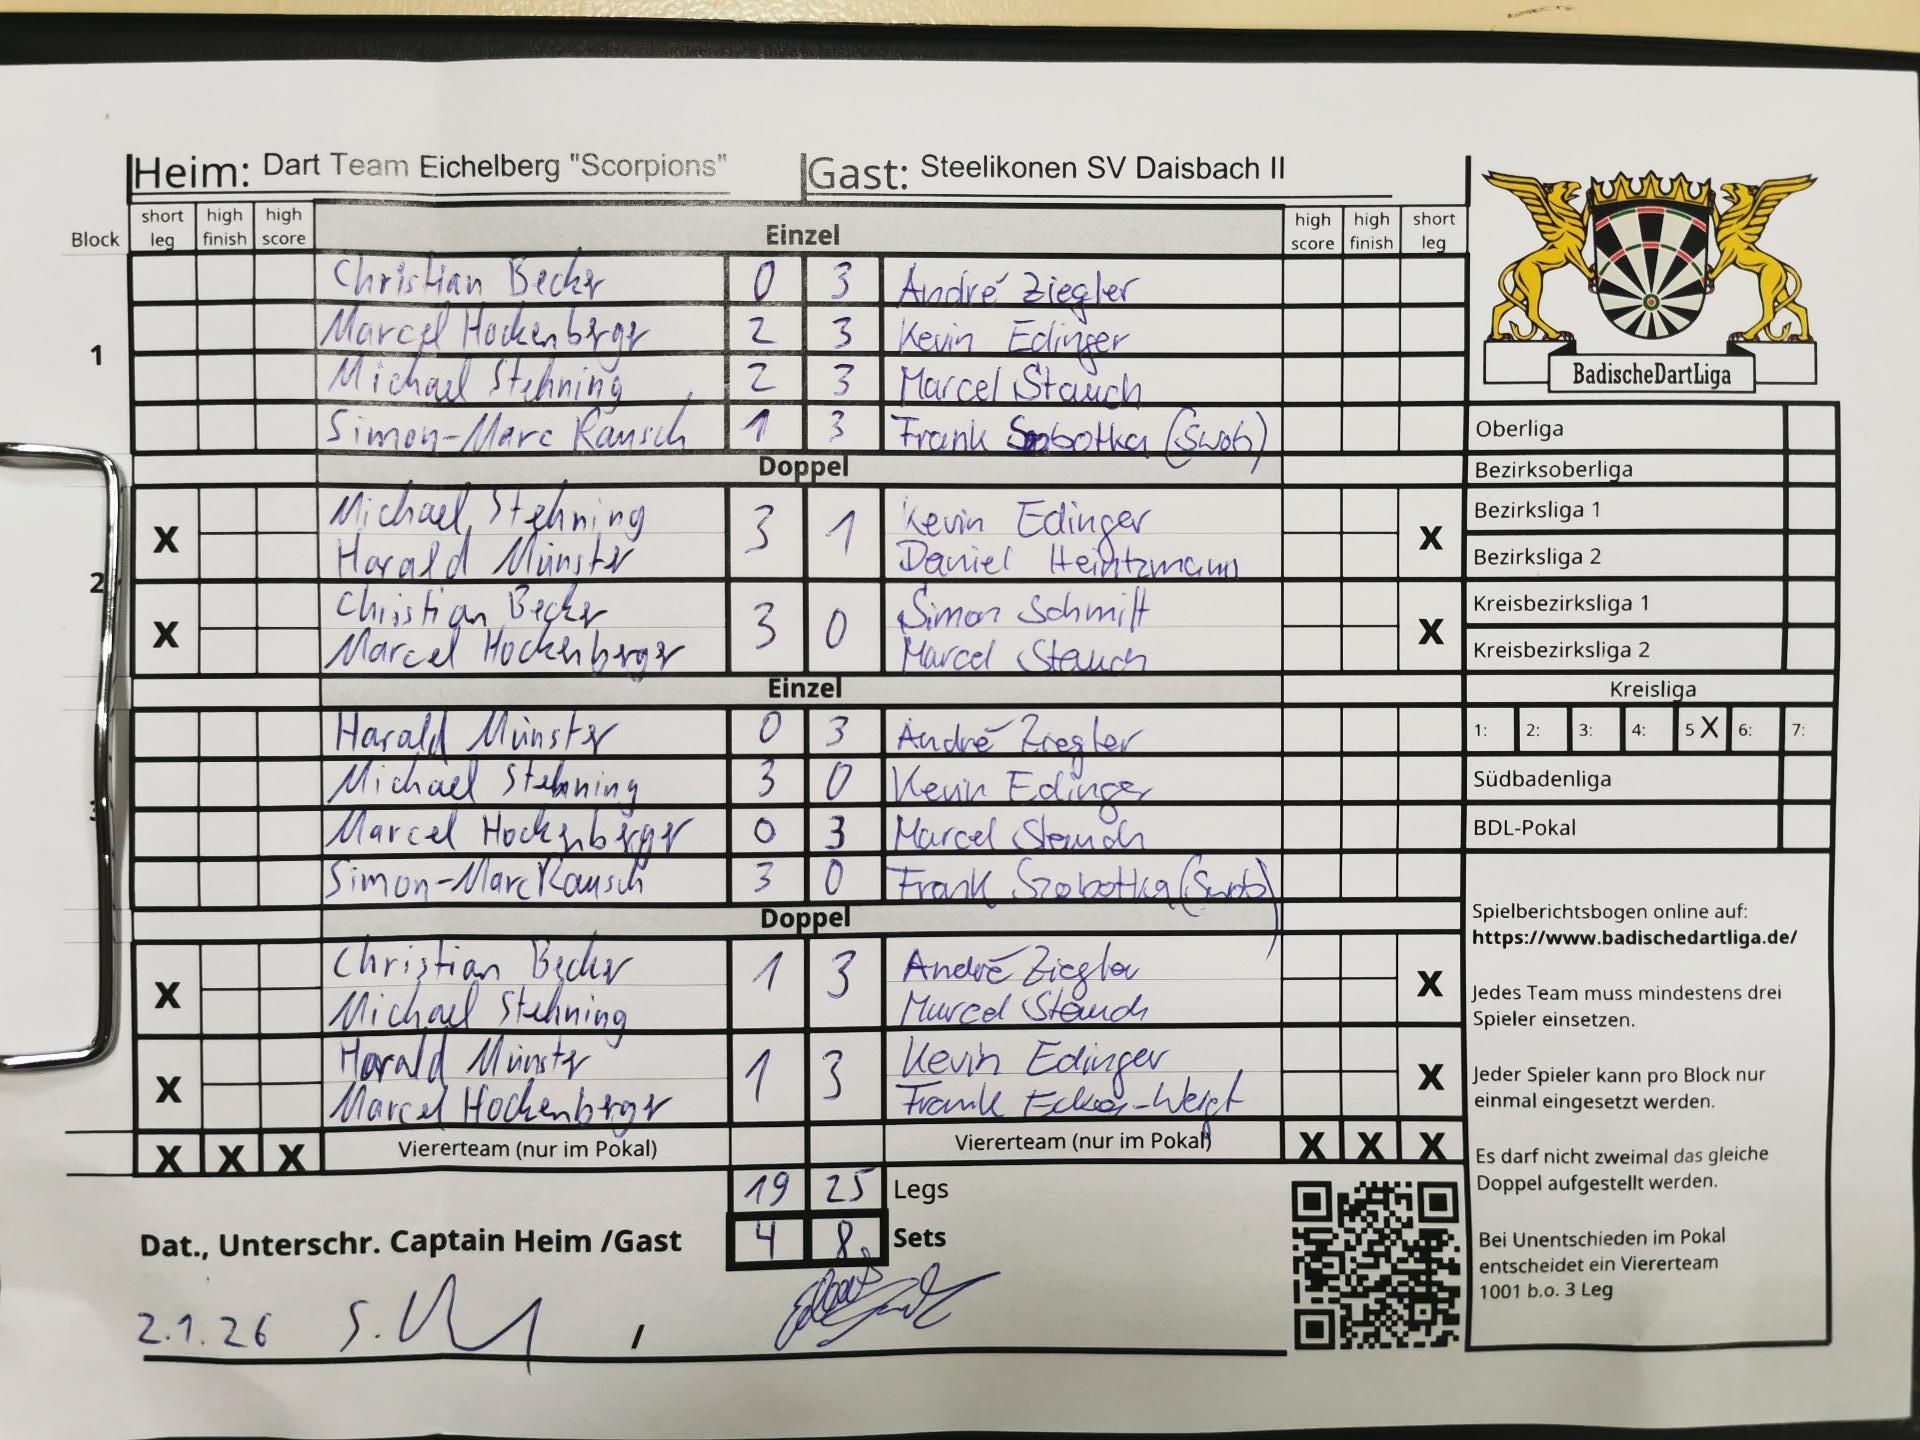 Heim: Dart Team Eichelberg "Scorpions" Gast: Steelikonen SV Daisbach II
Block short leg high finish high score Einzel high score high finish short leg
Christian Becker 0 3 André Ziegler
1 Marcel Hockenberger 2 3 Kevin Edinger
Michael Stehning 2 3 Marcel Stauch
Simon-Marc Rausch 1 3 Frank (Swob)
Doppel
Michael Stehning 3 1 Kevin Edinger
X X
Harald Münster Daniel Heintzmann
2
Christian Becker 3 0 Simon Schmitt
X X
Marcel Hockenberger Marcel Stauch
Einzel
Harald Münster 0 3 André Ziegler
Michael Stehning 3 0 Kevin Edinger
3 Marcel Hockenberger 0 3 Marcel Stauch
Simon-Marc Rausch 3 0 Frank Szobotka (Swob)
Doppel
Christian Becker 1 3 André Ziegler
X X
Michael Stehning Marcel Stauch
Harald Münster 1 3 Kevin Edinger
X X
Marcel Hockenberger Frank
X X X Viererteam (nur im Pokal) Viererteam (nur im Pokal) X X X
19 25 Legs
4 8 Sets
Dat., Unterschr. Captain Heim /Gast
2.1.26 /
BadischeDartLiga
Oberliga
Bezirksoberliga
Bezirksliga 1
Bezirksliga 2
Kreisbezirksliga 1
Kreisbezirksliga 2
Kreisliga
1: 2: 3: 4: 5 X 6: 7:
Südbadenliga
BDL-Pokal
Spielberichtsbogen online auf:
https://www.badischedartliga.de/
Jedes Team muss mindestens drei
Spieler einsetzen.
Jeder Spieler kann pro Block nur
einmal eingesetzt werden.
Es darf nicht zweimal das gleiche
Doppel aufgestellt werden.
Bei Unentschieden im Pokal
entscheidet ein Viererteam
1001 b.o. 3 Leg